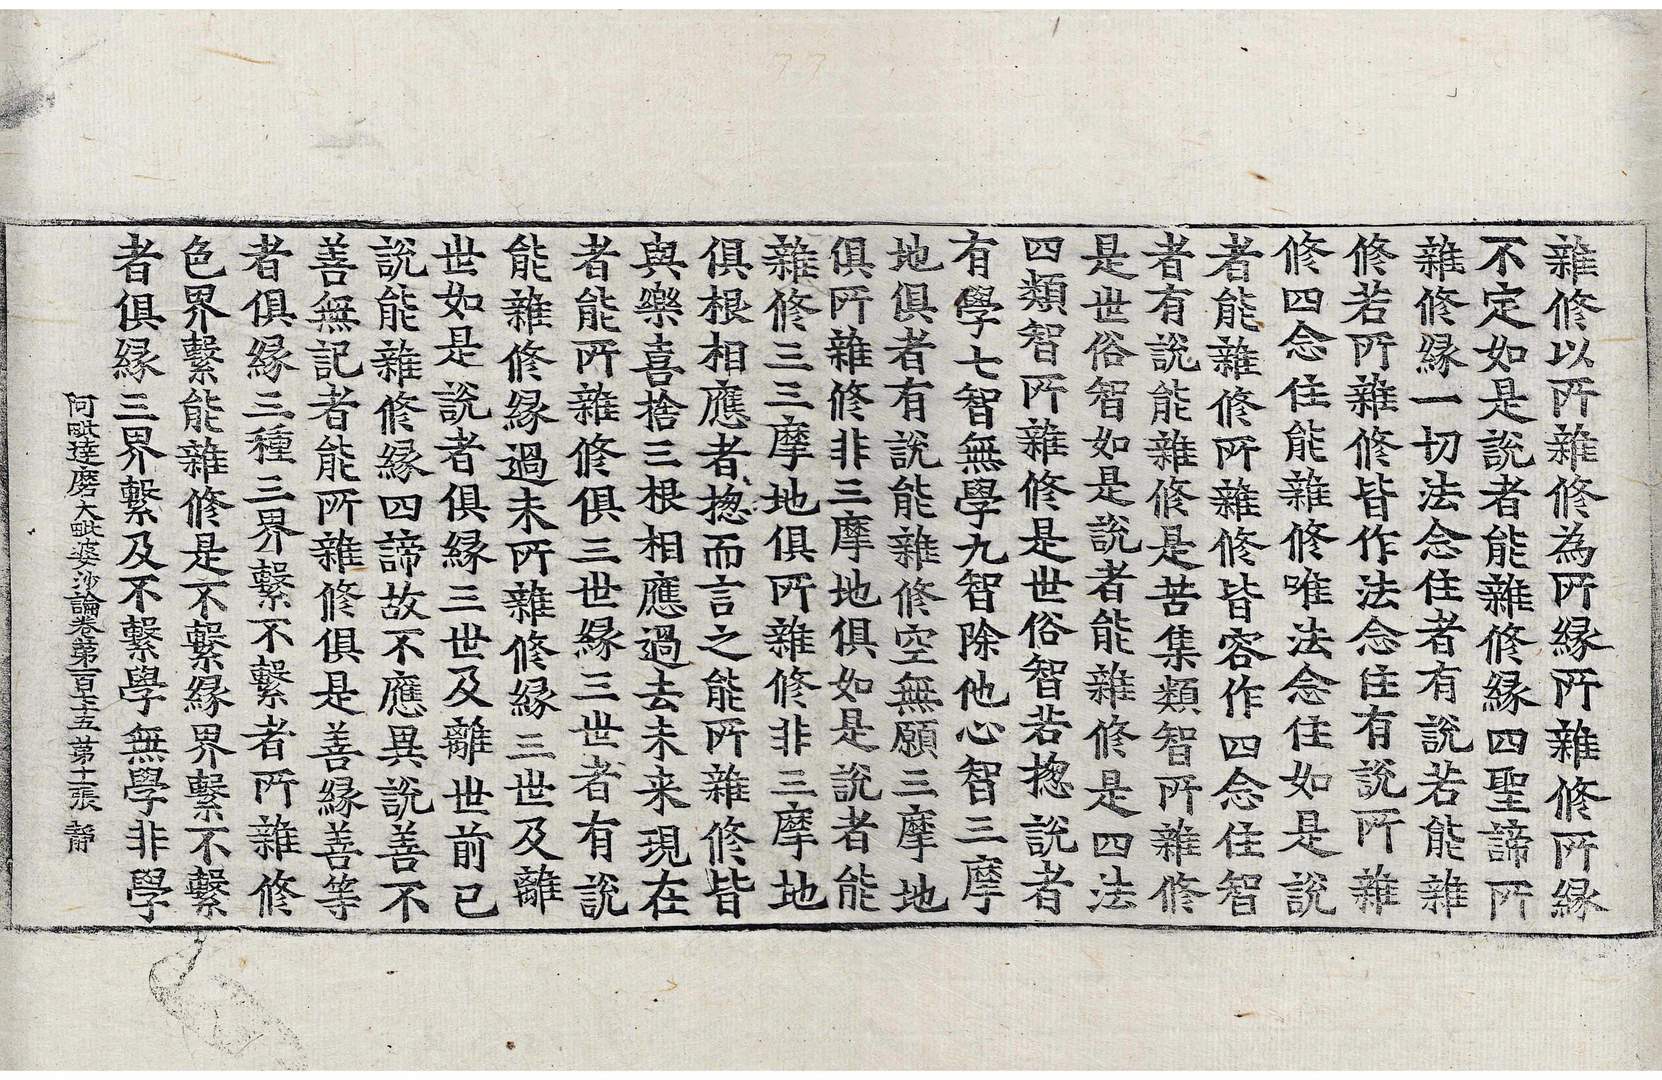 雜修以所雜修為所緣所雜修所緣
不定如是說者能雜修緣四聖諦所
雜修緣一切法念住者有說若能雜
修若所雜修皆作法念住有說所雜
修四念住能雜修唯法念住如是說
者能雜修所雜修皆容作四念住智
者有說能雜修是苦集類智所雜修
是世俗智如是說者能雜修是四法
四類智所雜修是世俗智若揔說者
有學七智無學九智除他心智三摩
地俱者有說能雜修空無願三摩地
俱所雜修非三摩地俱如是說者能
雜修三三摩地俱所雜修非三摩地
俱根相應者揔而言之能所雜修皆
與樂喜捨三根相應過去未来現在
者能所雜修俱三世緣三世者有說
能雜修緣過未所雜修緣三世及離
世如是說者俱緣三世及離世前已
說能雜修緣四諦故不應異說善不
善無記者能所雜修俱是善緣善等
者俱緣三種三界繫不繫者所雜修
色界繫能雜修是不繫緣界繫不繫
者俱緣三界繫及不繫學無學非學
阿毗達磨大毗婆沙論卷第一百七十五 第十張 靜